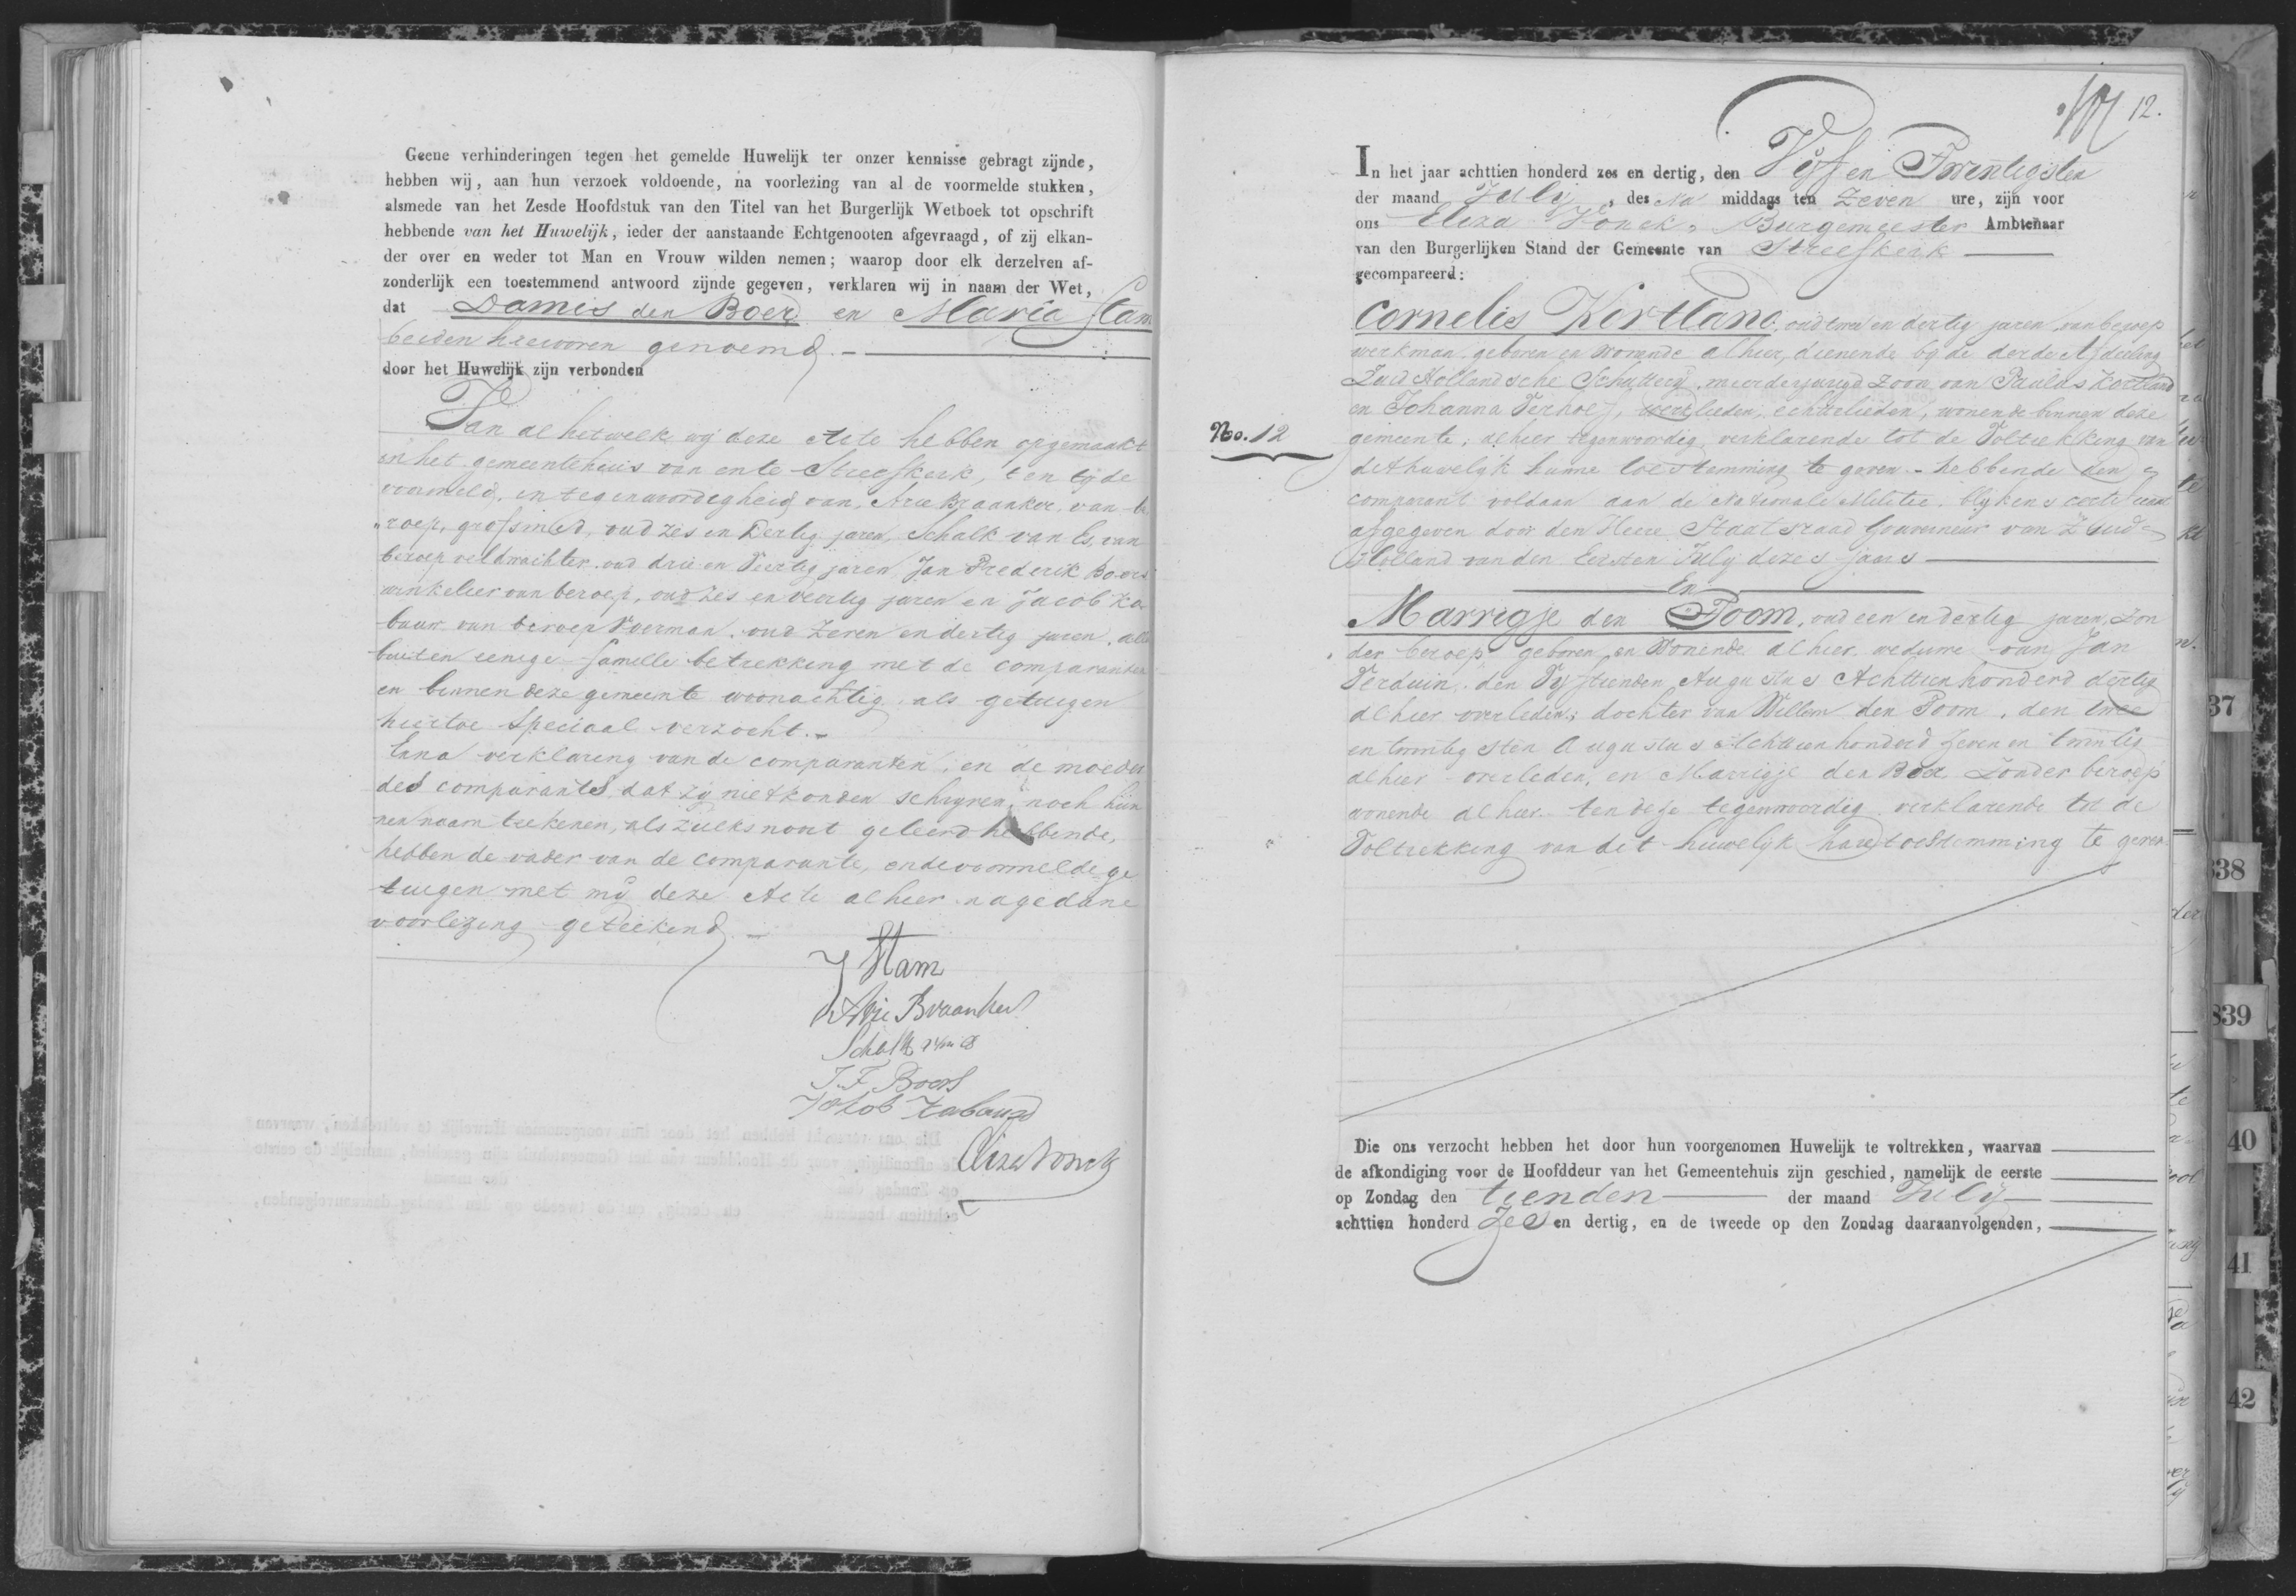 Geene verhinderingen tegen het gemelde Huwelijk ter onzer kennisse gebragt zijnde,
hebben wij, aan hun verzoek voldoende, na voorlezing van al de voormelde stukken,
alsmede van het Zesde Hoofdstuk van den Titel van het Burgerlijk Wetboek tot opschrift
hebbende van het Huwelijk, ieder der aanstaande Echtgenooten afgevraagd, of zij elkan-
der over en weder tot Man en Vrouw wilden nemen; waarop door elk derzelven af-
zonderlijk een toestemmend antwoord zijnde gegeven, verklaren wij in naam der Wet,
dat Damis den Boer en Maria Stam
beiden hiervoren genoemd.
door het Huwelijk zijn verbonden
Van al hetwelk wij deze Acte hebben opgemaakt
in het gemeentehuis van en te Streefkerk, ten tijde
voormeld, in tegenwoordigheid van, Arie Braanker, van be
roep, grofsmid, oud zes en Dertig jaren, Schalk van Es, van
beroep veldwachter, oud drie en Veertig jaren, Jan Frederik Boers
winkelier van beroep, oud zes en veertig jaren en Jacob Ka
baur van beroep Voerman, oud Zeven en dertig jaren, alle
buiten eenige familie betrekking met de comparanten
en binnen deze gemeente woonachtig, als getuigen
hiertoe speciaal verzocht.
Ena verklaring van de comparanten, en de moeder
des comparants dat zij niet konden schryven, noch hün
nen naam teekenen, als zulks nooit geleerd hebbende,
hebben de vader van de comparante, en de voormelde ge
tuigen met mij deze Acte alhier na gedane
voorlezing geteekend.
J Stam
Arie Braanker
Schalk van Es
J. F. Boers
Jakob Kabaur
Eliza Vonck
12.
No. 12
In het jaar achttien honderd zes en dertig, den Vijf en Twentigsten
der maand Julij, des Na middags ten Zeven ure, zijn voor
ons Eliza Vonck, Burgemeester Ambtenaar
van den Burgerlijken Stand der Gemeente van Streefkerk
gecompareerd:
Cornelis Kortland, oud twee en dertig jaren, van beroep
werkman, geboren en Wonende alhier, dienende bij de derde Afdeeling
Zuid Hollandsche Schuttery, meerderjarige zoon van Paulus Kortland
en Johanna Verhoef, werklieden, echtelieden, wonende binnen deze
gemeente, alhier tegenwoordig, verklarende tot de Voltrekking van
dit huwelijk hunne toestemming te geven - hebbende den
comparant voldaan aan de Nationale Militie, blijkens certificaat
afgegeven door den Heere Staatsraad Gouverneur van Zuid-
Holland van den Eersten Julij dezes jaars
En
Marrigje den Toom, oud een en dertig jaren, Zon
der beroep geboren en Wonende alhier weduwe van Jan
Verduin, den Vijftienden Augustus Achttienhonderd dertig
alhier overleden; dochter van Willem den Toom, den twee
en twintigsten Augustus Achttienhonderd zeven en twintig
alhier overleden, en Marrigje den Boer Zonder beroep
wonende alhier ten deze tegenwoordig verklarende tot de
Voltrekking van dit huwelijk hare toestemming te geven
Die ons verzocht hebben het door hun voorgenomen Huwelijk te voltrekken, waarvan
de afkondiging voor de Hoofddeur van het Gemeentehuis zijn geschied, namelijk de eerste
op Zondag den tienden der maand Julij
achttien honderd Zes en dertig, en de tweede op den Zondag daaraanvolgenden,
37
838
839
40
41
42